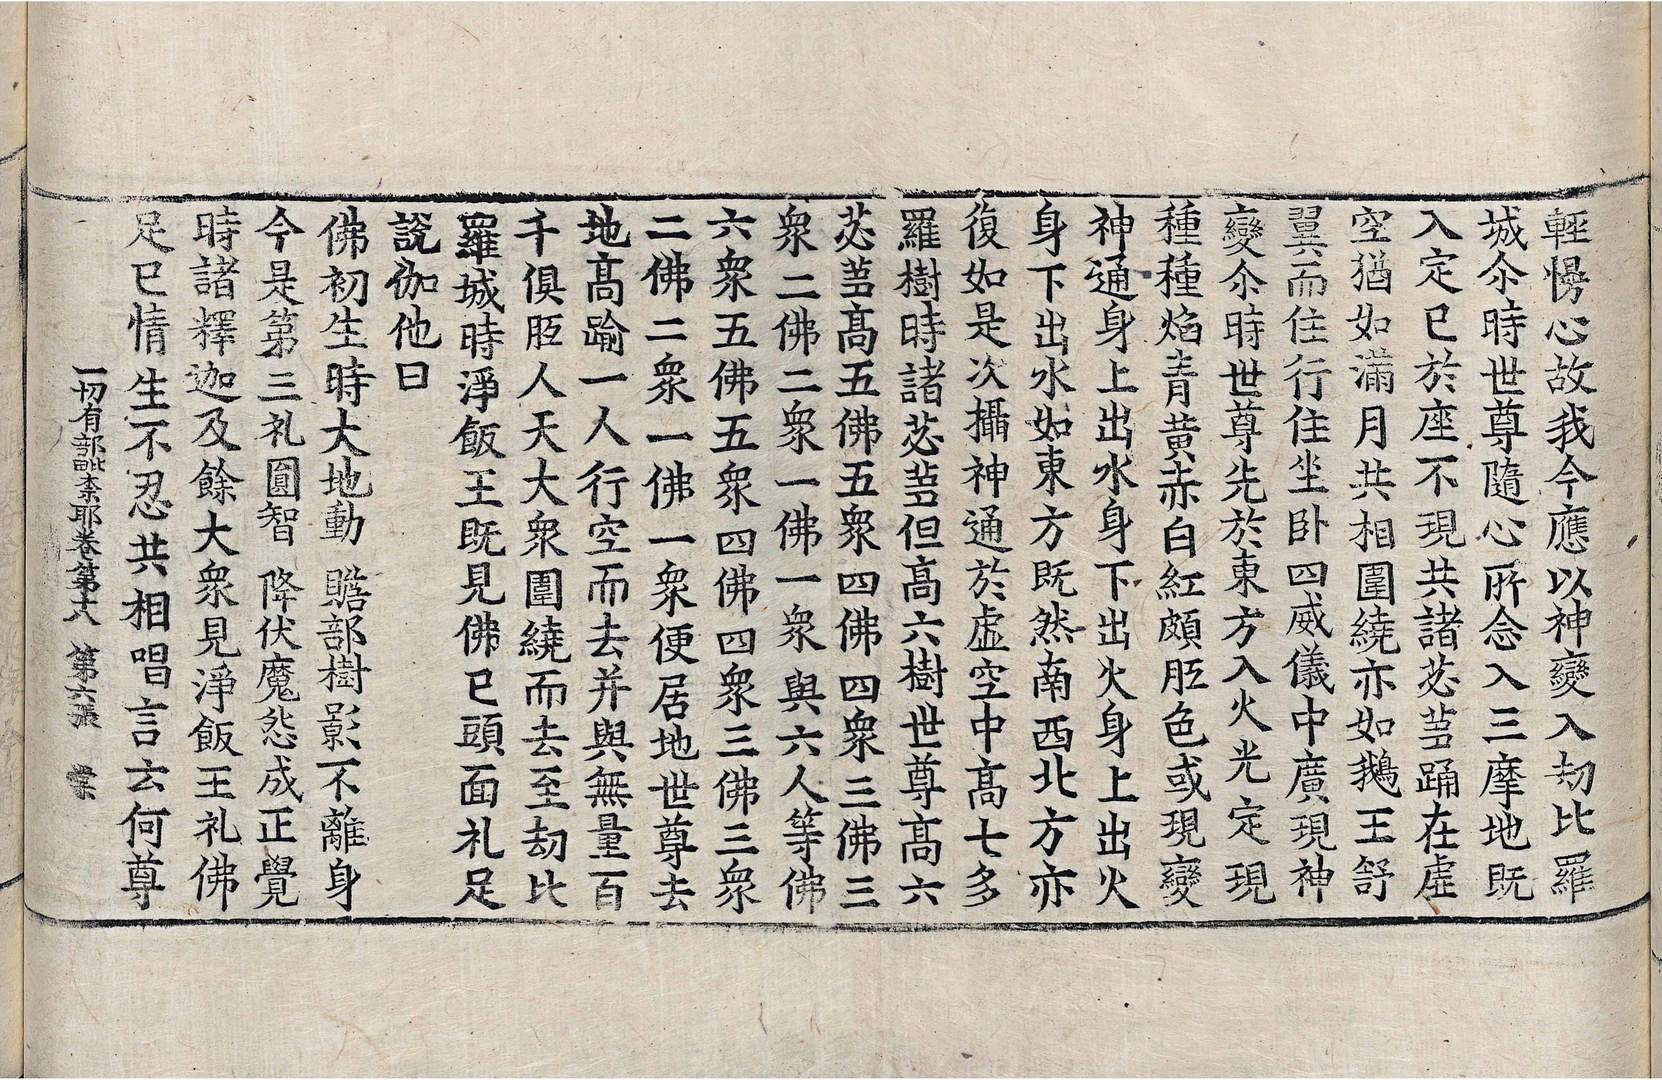 輕慢心故我今應以神變入劫比羅
城尒時世尊隨心所念入三摩地既
入定已於座不現共諸苾芻踊在虛
空猶如滿月共相圍繞亦如鵝王舒
翼而住行住坐卧四威儀中廣現神
變尒時世尊先於東方入火光定現
種種焰青黃赤白紅頗胝色或現變
神通身上出水身下出火身上出火
身下出水如東方既然南西北方亦
復如是次攝神通於虛空中髙七多
羅樹時諸苾芻但高六樹世尊髙六
苾芻髙五佛五衆四佛四衆三佛三
衆二佛二衆一佛一衆與六人等佛
六衆五佛五衆四佛四衆三佛三衆
二佛二衆一佛一衆便居地世尊去
地高踰一人行空而去并與無量百
千俱胝人天大衆圍繞而去至劫比
羅城時淨飯王既見佛已頭面礼足
說伽他曰
佛初生時大地動　贍部樹影不離身
今是第三礼圓智　降伏魔怨成正覺
時諸釋迦及餘大衆見淨飯王礼佛
足已情生不忍共相唱言云何尊
一切有部毗柰耶卷第十八　第六張　業